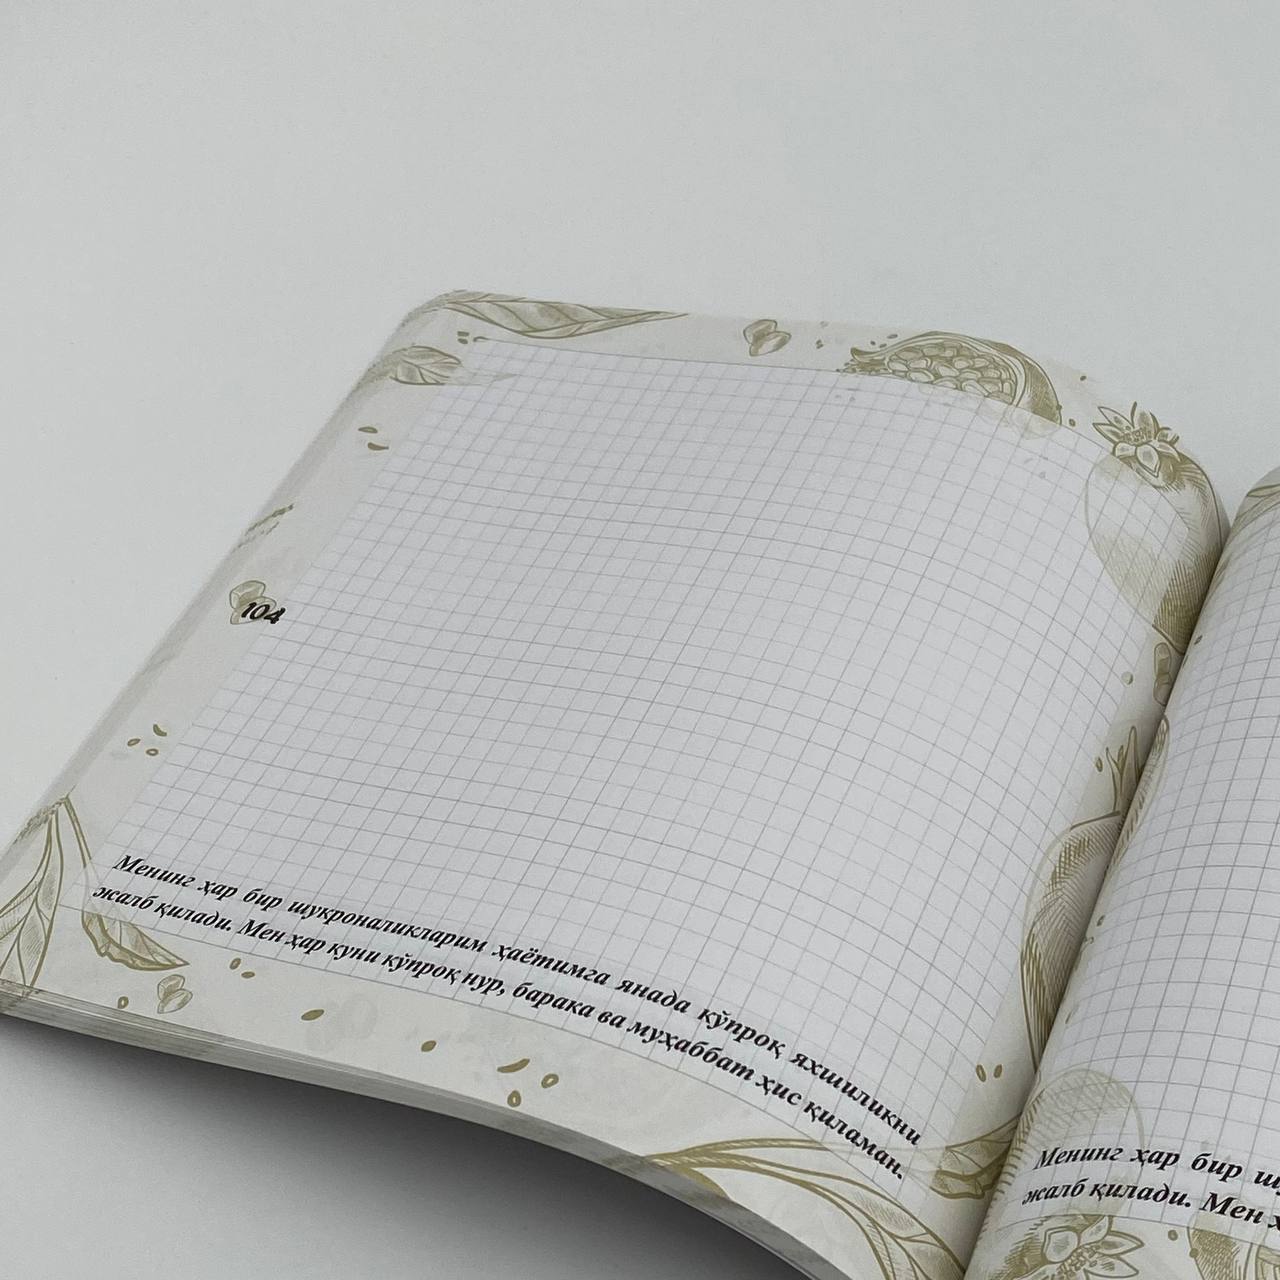 104
Менинг ҳар бир шукроналикларим ҳаётимга янада кўпроқ яхшиликни
жалб қилади. Мен ҳар куни кўпроқ нур, барака ва муҳаббат ҳис қиламан.
Менинг ҳар бир
жалб қилади. Мен